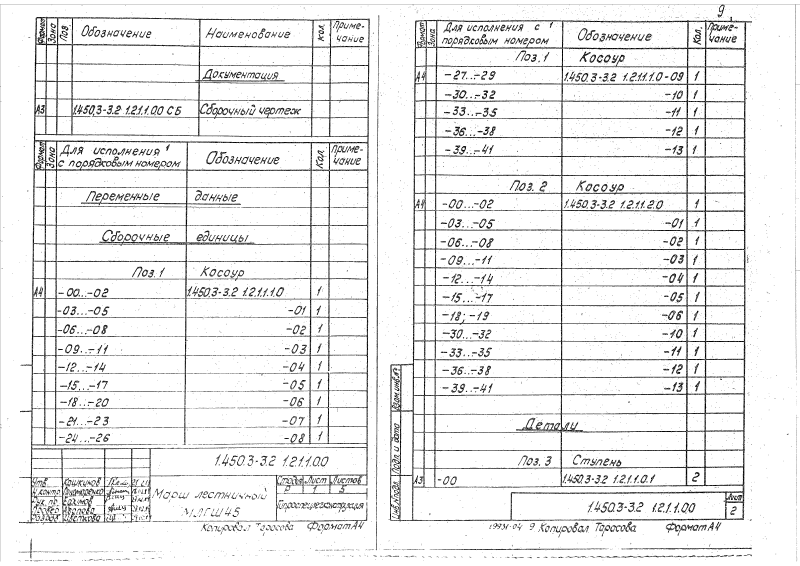 Формат Зона Поз. Обозначение Наименование Кол. Приме-чание
Документация
А3 1.450.3-3.2 1.2.1.1.00 СБ Сборочный чертеж
Формат Зона Для исполнения с порядковым номером Обозначение Кол. Приме-чание
Переменные данные
Сборочные единицы
Поз. 1 Косоур
А4 -00...-02 1.450.3-3.2 1.2.1.1.1.0 1
-03...-05 -01 1
-06...-08 -02 1
-09...-11 -03 1
-12...-14 -04 1
-15...-17 -05 1
-18...-20 -06 1
-21...-23 -07 1
-24...-26 -08 1
1.450.3-3.2 1.2.1.1.0.0
Утв. Кашкинов
Н.контр. Пономаренко
Рук. пр. Евдимов
Разраб. Цветкова
Марш лестничный
МЛГШ45
Стадия Лист Листов
Р 5
Копировал Тарасова Формат А4
9
Формат Зона Для исполнения с порядковым номером Обозначение Кол. Приме-чание
Поз. 1 Косоур
А4 -27...-29 1.450.3-3.2 1.2.1.1.1.0-09 1
-30...-32 -10 1
-33...-35 -11 1
-36...-38 -12 1
-39...-41 -13 1
Поз. 2 Косоур
А4 -00...-02 1.450.3-3.2 1.2.1.1.2.0 1
-03...-05 -01 1
-06...-08 -02 1
-09...-11 -03 1
-12...-14 -04 1
-15...-17 -05 1
-18; -19 -06 1
-30...-32 -10 1
-33...-35 -11 1
-36...-38 -12 1
-39...-41 -13 1
Детали
Поз. 3 Ступень
А3 -00 1.450.3-3.2 1.2.1.1.0.1 2
Инв.№подл. Подп. и дата Взам.инв.№
1.450.3-3.2 1.2.1.1.00
Лист
2
19931-04 9 Копировал Тарасова Формат А4